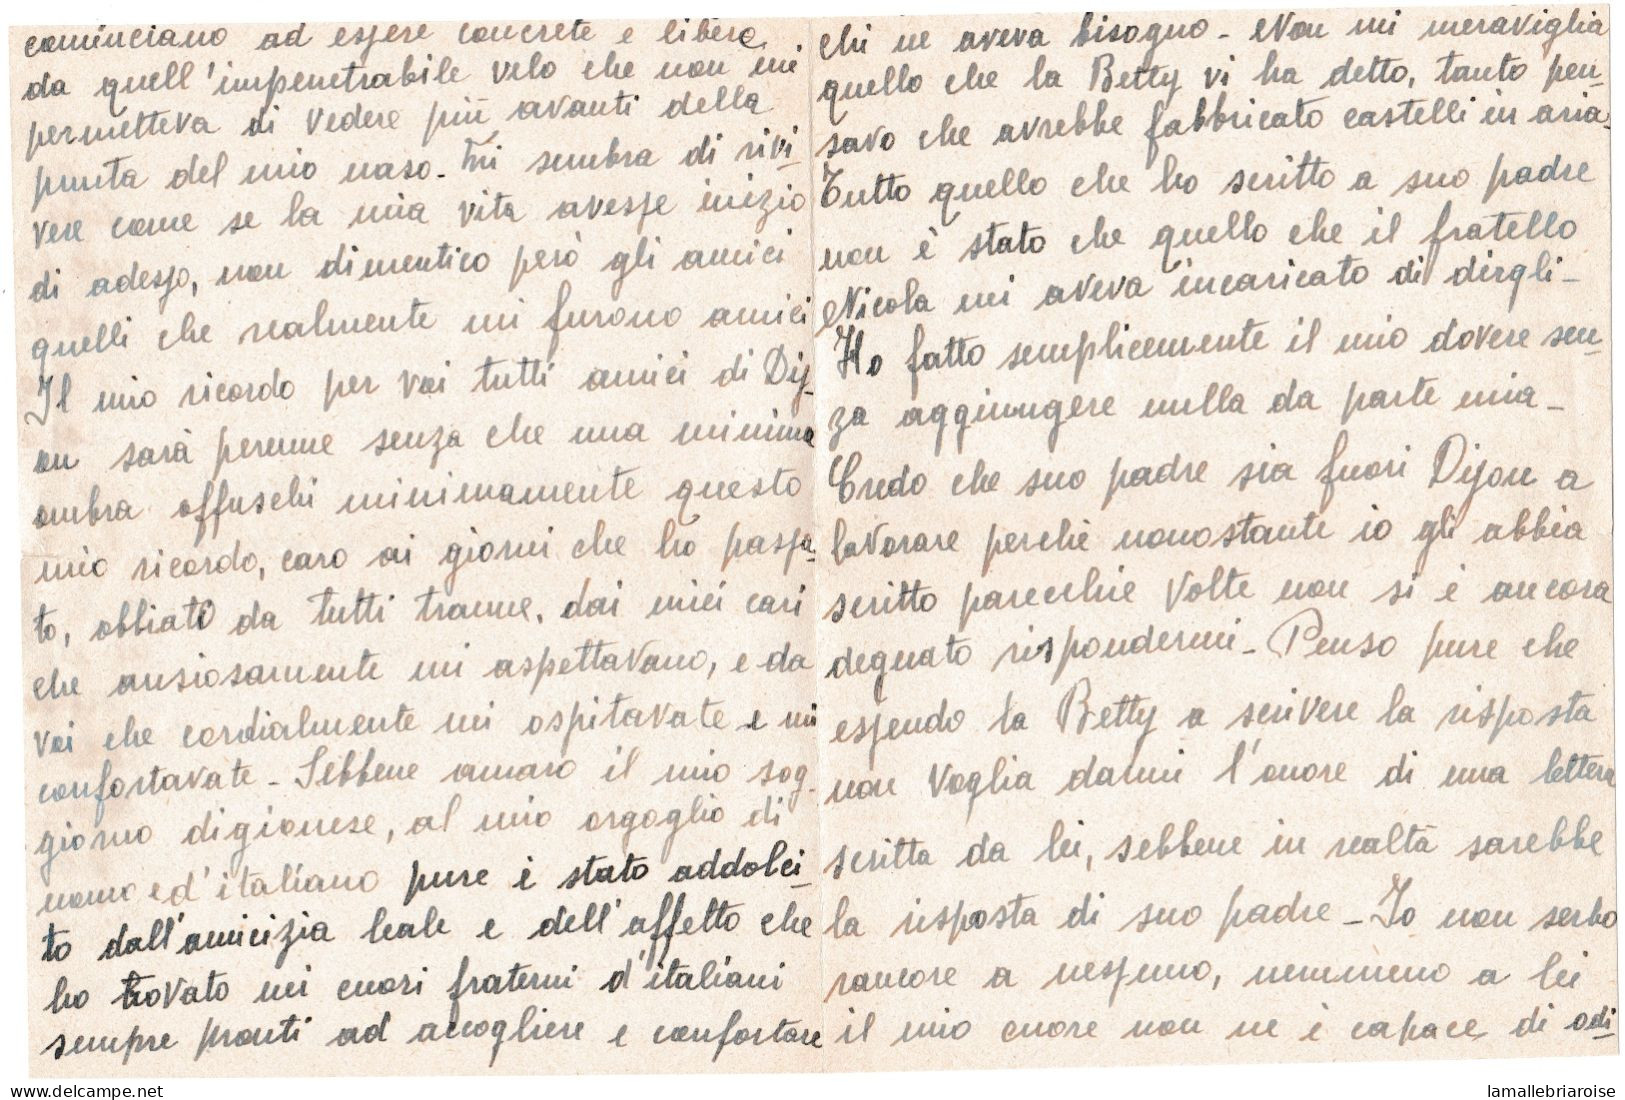 cominciano ad essere concrete e libere
da quell'impenetrabile velo che non mi
permetteva di vedere più avanti della
punta del mio naso. Mi sembra di rivi-
vere come se la mia vita avesse inizio
di adesso, non dimentico però gli amici
quelli che realmente mi furono amici
Il mio ricordo per voi tutti amici di Dij-
on sarà perenne senza che una minima
ombra offuschi minimamente questo
mio ricordo, caro ai giorni che ho passa-
to, obbiati da tutti tranne, dai miei cari
che ansiosamente mi aspettavano, e da
voi che cordialmente mi ospitavate e mi
confortavate - Sebbene amaro il mio sog-
giorno digionese, al mio orgoglio di
uomo ed'italiano pure è stato addolci-
to dall'amicizia leale e dell'affetto che
ho trovato nei cuori fraterni d'italiani
sempre pronti ad accogliere e confortare
chi ne aveva bisogno - Non mi meraviglia
quello che la Betty vi ha detto, tanto pen-
savo che avrebbe fabbricato castelli in aria.
Tutto quello che ho scritto a suo padre
non è stato che quello che il fratello
Nicola mi aveva incaricato di dirgli -
Ho fatto semplicemente il mio dovere sen-
za aggiungere nulla da parte mia -
Credo che suo padre sia fuori Dijon a
lavorare perchè nonostante io gli abbia
scritto parecchie volte non si è ancora
degnato rispondermi - Penso pure che
essendo la Betty a scrivere la risposta
non voglia darmi l'onore di una lettera
scritta da lei, sebbene in realtà sarebbe
la risposta di suo padre - Io non serbo
rancore a nessuno, nemmeno a lei
il mio cuore non ne è capace di odi-
lamallebriaroise